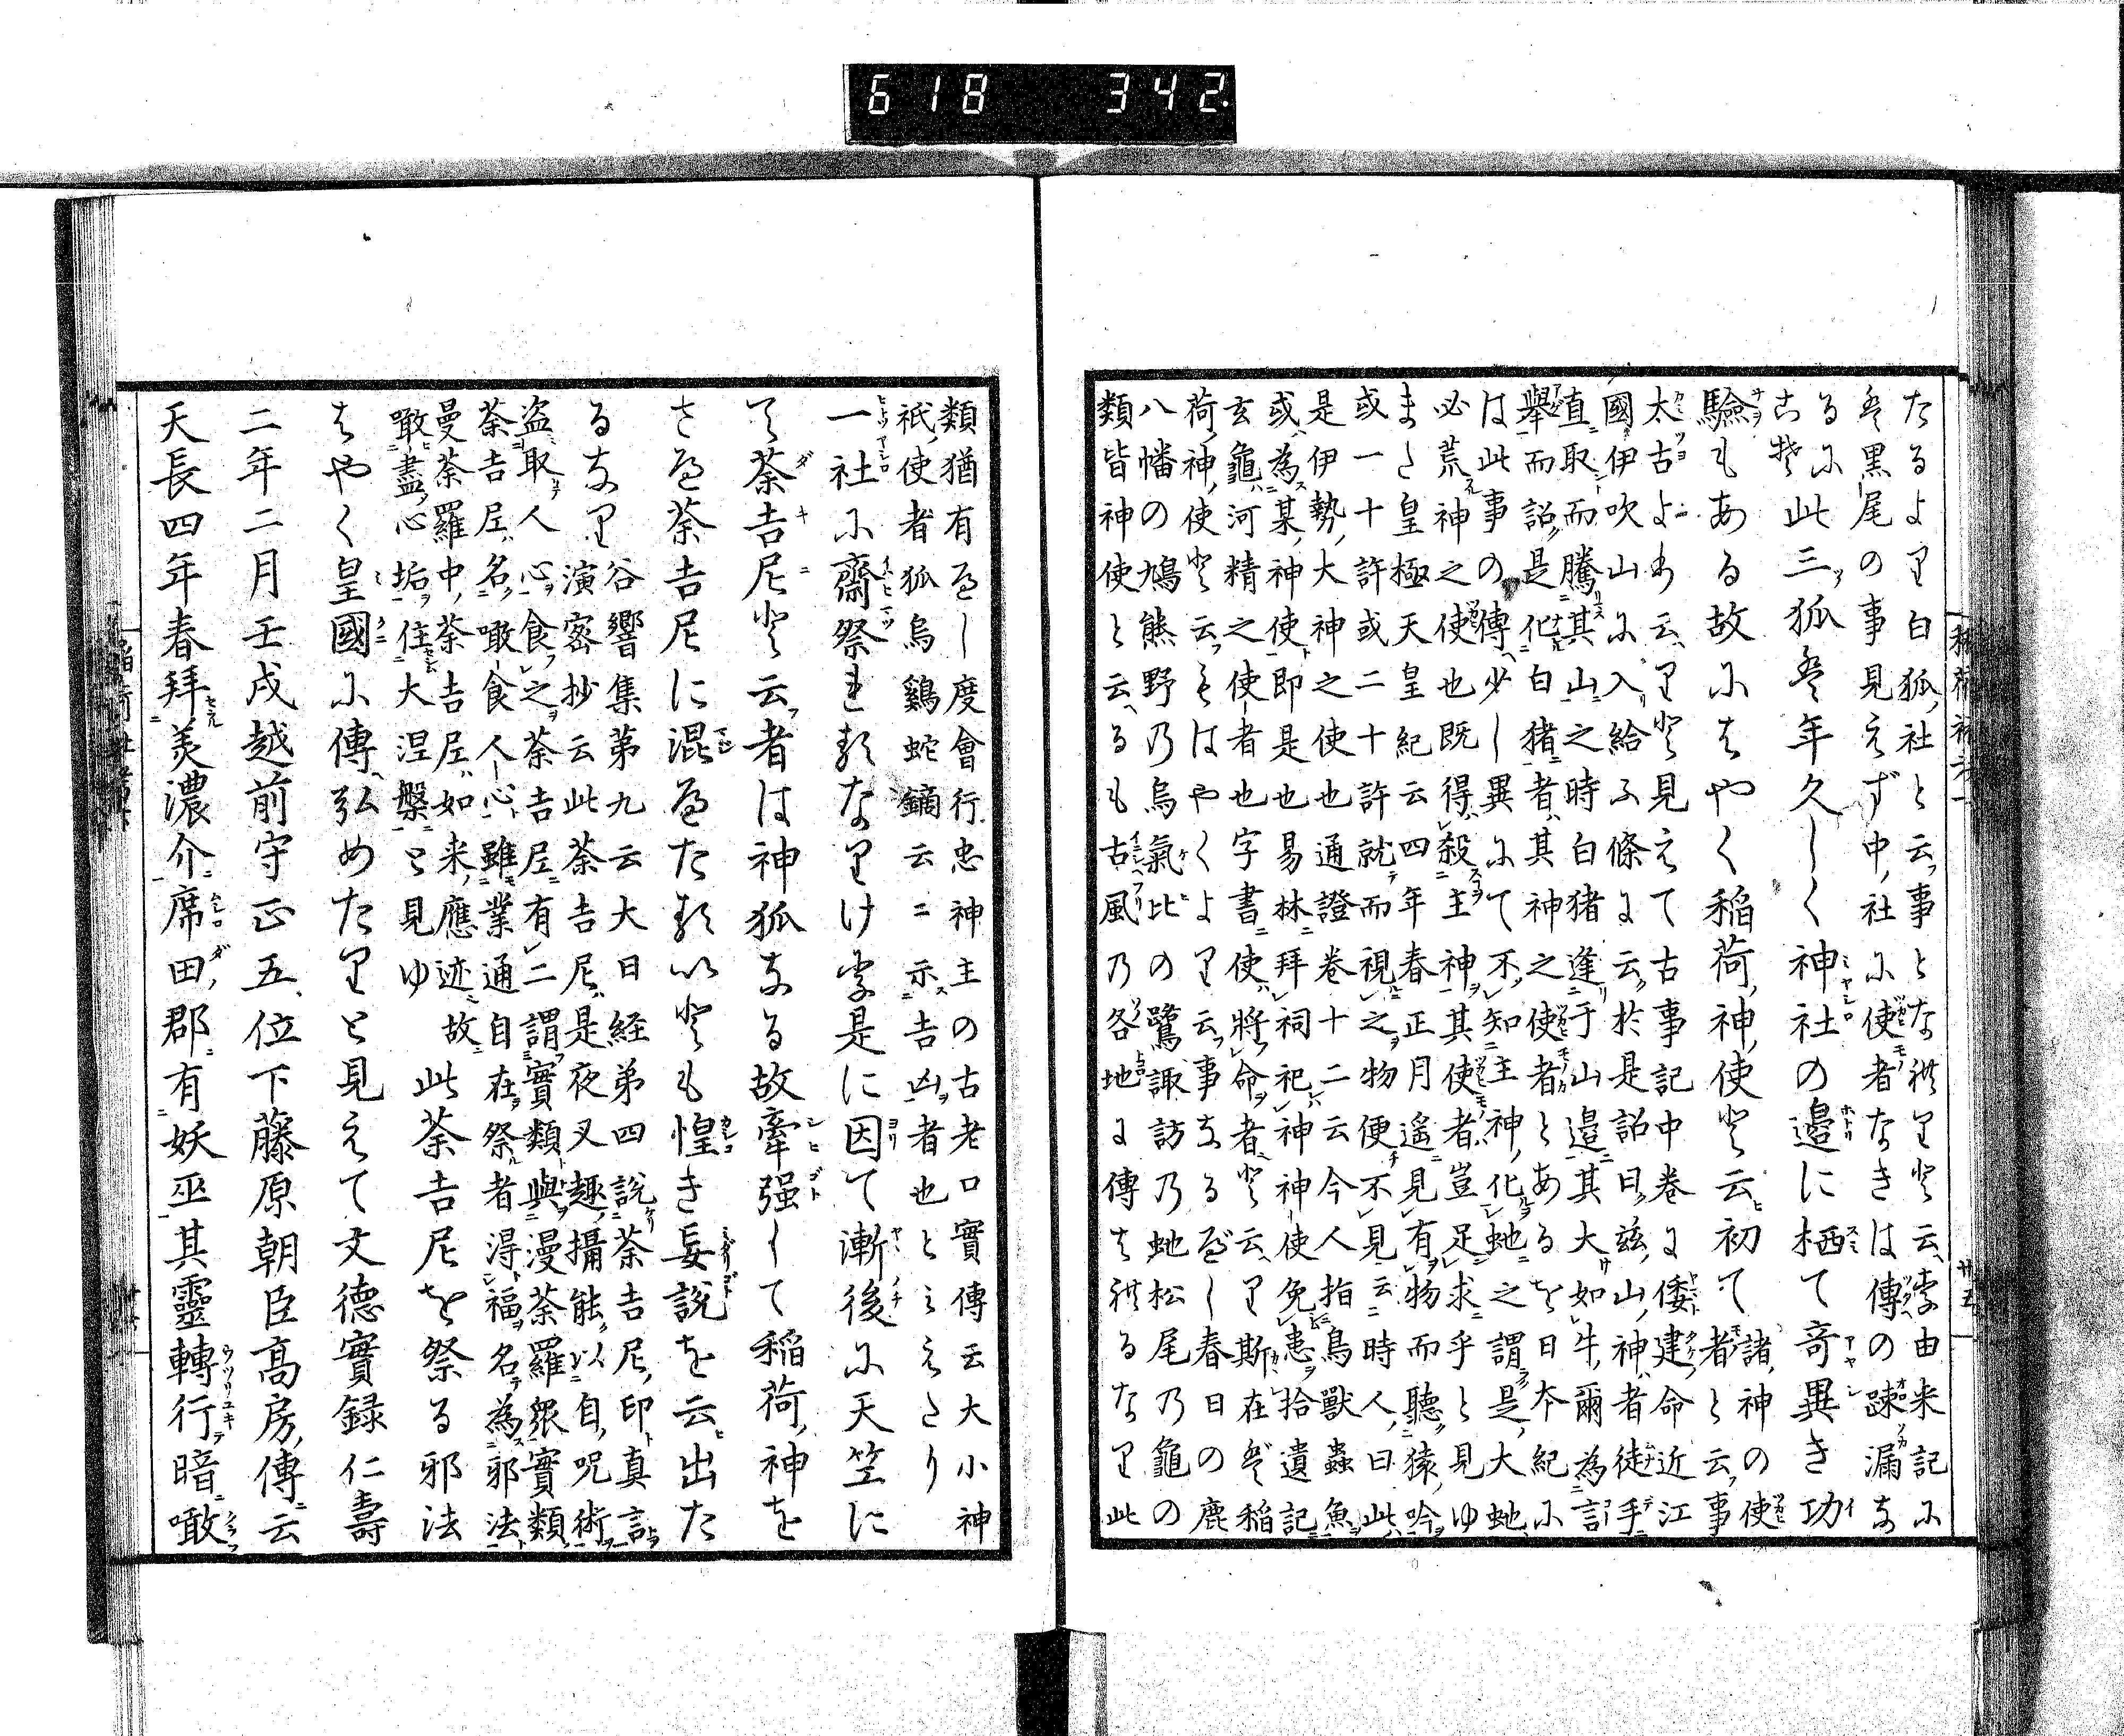 618 342
たるより白狐社と云事となれりと云、孛由来記に
も黒尾の事見えず中社に使者なきは傳の踈漏な
るに此三狐も年久しく神社の邉に栖て竒異き功
驗もある故にはやく稲荷神使と云初て諸神の使者と云事
太古よあ云りと見えて古事記中巻に倭建命近江
國伊吹山に入給ふ條に云於是詔曰茲山神者徒手
直取而騰其山之時白猪逢于山邉其大如牛爾為言
舉而詔是化白猪者其神之使者とあるを日本紀に
は此事の傳少し異にて不知主神化虵之謂是大虵
必荒神之使也既得殺主神其使者豈足求乎と見ゆ
また皇極天皇紀云四年春正月遥見有物而聽猿吟
或一十許或二十許就而視之物便不見云云時人曰此
是伊勢大神之使也通證巻十二云今人指鳥獸蟲魚
或為某神使即是也易林拜祠祀神神使免患拾遺記
玄龜河精之使者也字書使將命者と云り斯在ば稲
荷神使と云もはやくより云事なるべし春日の鹿
八幡の鳩熊野乃烏氣比の鷺諏訪乃虵松尾乃龜の
類皆神使と云るも古風乃各地に傳はれるなり此
類猶有べし度會行忠神主の古老口實傳云大小神
祇使者狐烏鷄蛇鏑云云示吉凶者也と云えたり
一社に齋祭れるなりけり是に因て漸後に天竺に
て荼吉尼と云者は神狐なる故牽强して稲荷神を
さへ荼吉尼に混へたるいとも惶き妄説を云出た
るなり谷響集第九云大日経第四説荼吉尼印真言
演密抄云此荼吉尼是夜叉趣攝能以自呪術
盗取人心食之荼吉尼有二謂實類與漫荼羅衆實類
荼吉尼名噉食人心雖業通自在祭者得福名為邪法
曼荼羅中荼吉尼如来應迹故
噉盡心垢住大涅槃と見ゆ此荼吉尼を祭る邪法
はやく皇國に傳弘めたりと見えて文徳實録仁壽
二年二月壬戌越前守正五位下藤原朝臣髙房傳云
天長四年春拜美濃介席田郡有妖巫其靈轉行暗噉